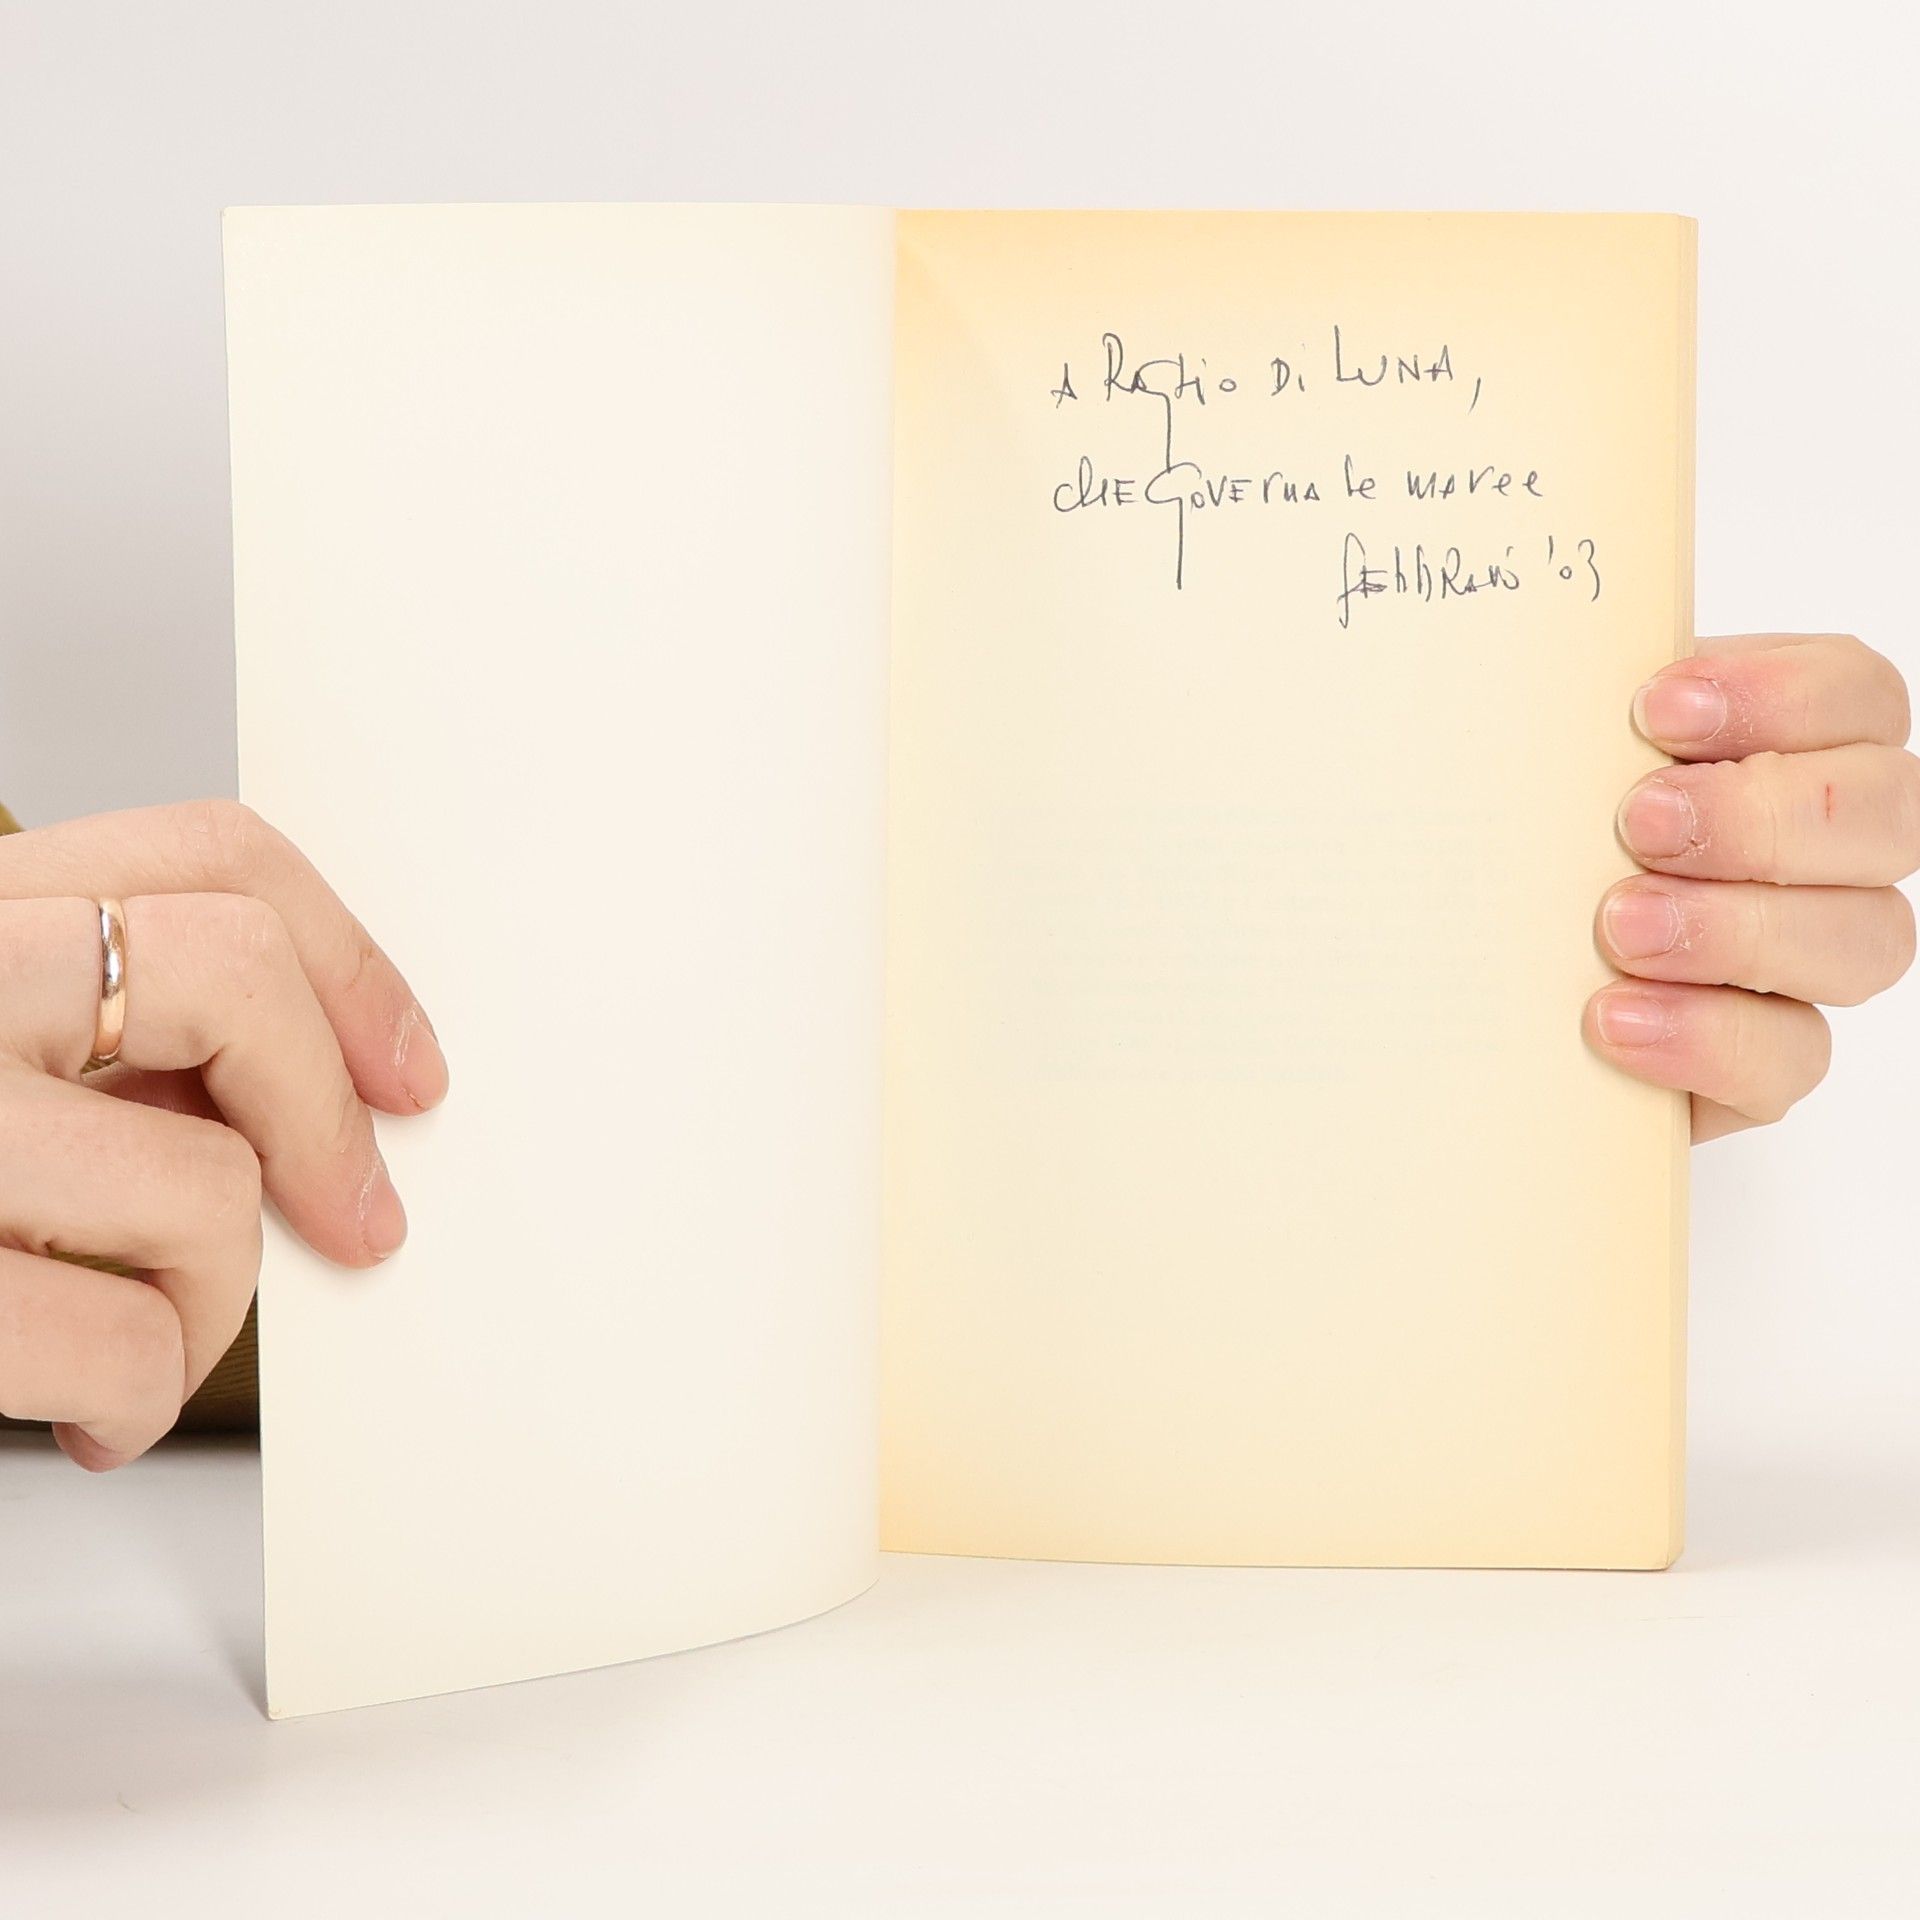 A Raggio Di LUNA,
CHE GOVERNA le maree
FEBBRAIO '03